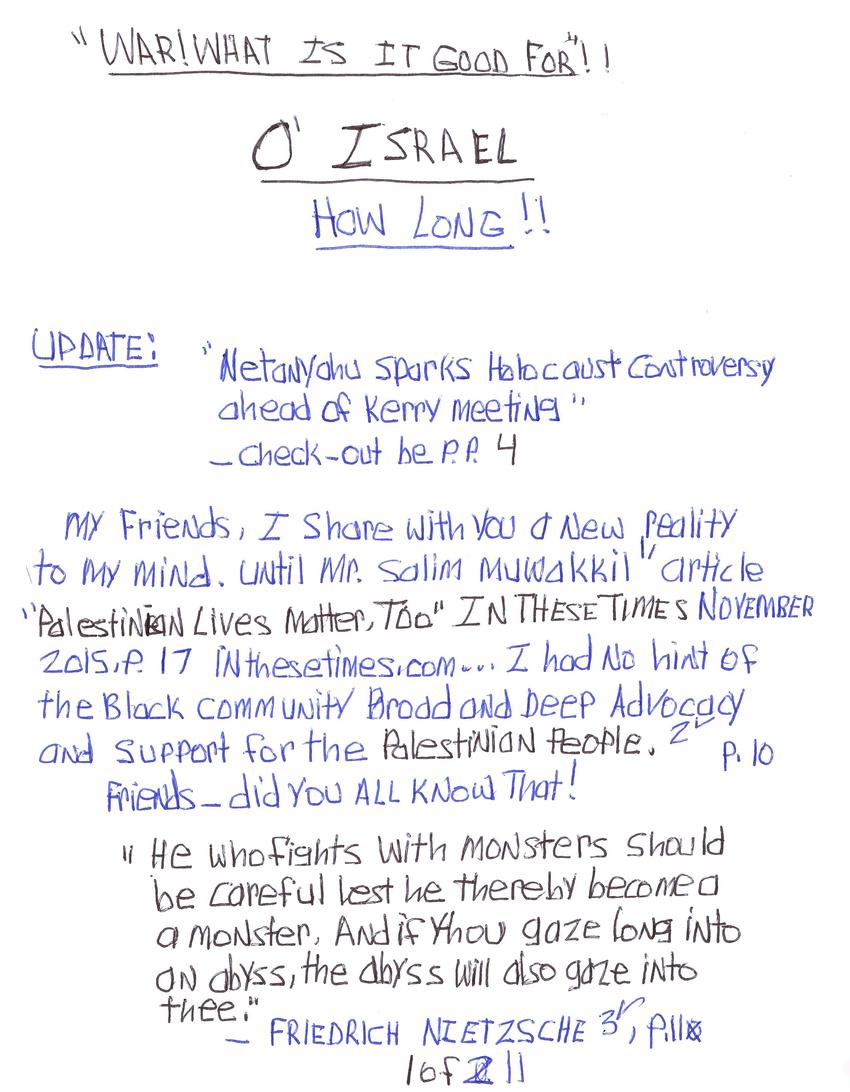 "WAR! WHAT IS IT GOOD FOR"!!
O' ISRAEL
HOW LONG!!
UPDATE: "Netanyahu sparks Holocaust Controversy
ahead of Kerry meeting"
- check-out be P.P. 4
My Friends, I share with you a New reality
to my mind. until Mr. Salim Muwakkil 1 article
"Palestinian Lives Matter, Too" IN THESE TIMES NOVEMBER
2015, P. 17 INthesetimes.com... I had No hint of
the Black community Broad and Deep Advocacy
and support for the Palestinian People. 2 P. 10
Friends - did you ALL KNow That!
"He who fights with monsters should
be careful lest he thereby become a
a monster. And if thou gaze long into
an abyss, the abyss will also gaze into
thee."
- FRIEDRICH NIETZSCHE 3, P.11
1 of 11